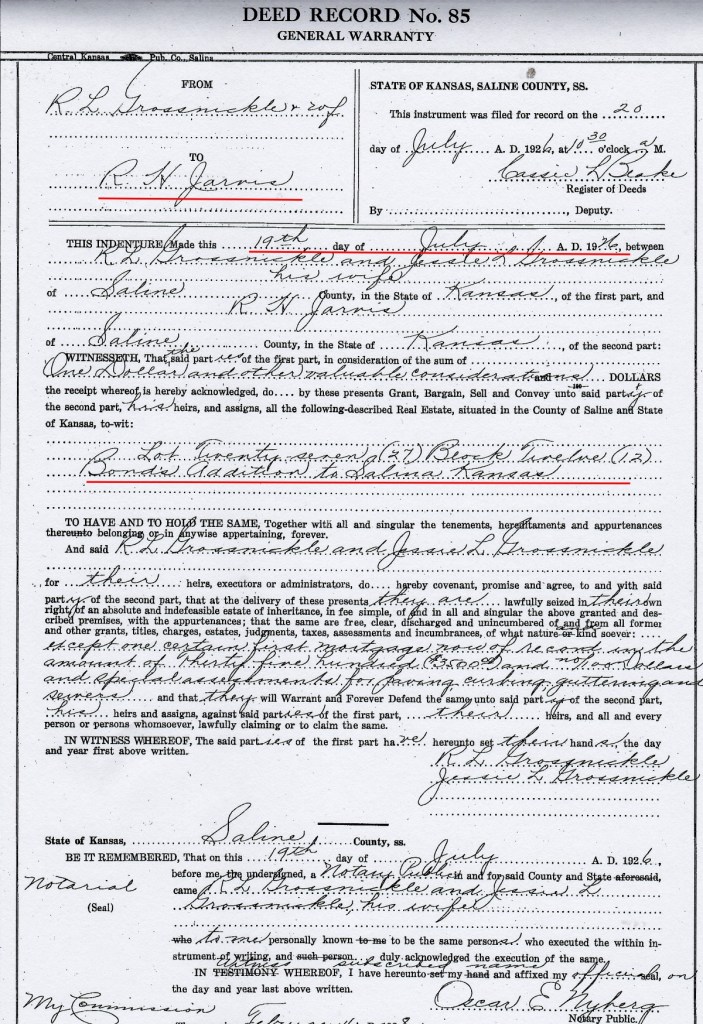 DEED RECORD No. 85
GENERAL WARRANTY
Central Kansas Pub. Co., Salina
FROM
R. L. Grossnickle & wf
TO
R. H. Jarvis
STATE OF KANSAS, SALINE COUNTY, SS.
This instrument was filed for record on the 20
day of July A. D. 1926, at 10 30 o'clock a M.
Cassie L Beake
Register of Deeds
By , Deputy.
THIS INDENTURE, Made this 19th day of July A. D. 1926, between
R. L. Grossnickle and Jessie L Grossnickle
his wife
of Saline County, in the State of Kansas, of the first part, and
R H Jarvis
of Saline County, in the State of Kansas, of the second part:
WITNESSETH, That the said parties of the first part, in consideration of the sum of
One Dollar and other valuable considerations and DOLLARS
the receipt whereof is hereby acknowledged, do.... by these presents Grant, Bargain, Sell and Convey unto said party of
the second part, his heirs, and assigns, all the following-described Real Estate, situated in the County of Saline and State
of Kansas, to-wit:
Lot Twenty seven (27) Block Twelve (12)
Bond's Addition to Salina Kansas
TO HAVE AND TO HOLD THE SAME, Together with all and singular the tenements, hereditaments and appurtenances
thereunto belonging or in anywise appertaining, forever.
And said R L Grossnickle and Jessie L Grossnickle
for their heirs, executors or administrators, do.... hereby covenant, promise and agree, to and with said
party of the second part, that at the delivery of these presents they are lawfully seized in their own
right, of an absolute and indefeasible estate of inheritance, in fee simple, of and in all and singular the above granted and des-
cribed premises, with the appurtenances; that the same are free, clear, discharged and unincumbered of and from all former
and other grants, titles, charges, estates, judgments, taxes, assessments and incumbrances, of what nature or kind soever:
except one certain first mortgage now of record in the
amount of Thirty five hundred ($3500.00) and no/100 Dollars
and special assessments for paving curbing guttering and
sewers and that they will Warrant and Forever Defend the same unto said party of the second part,
his heirs and assigns, against said parties of the first part, their heirs, and all and every
person or persons whomsoever, lawfully claiming or to claim the same.
IN WITNESS WHEREOF, The said parties of the first part have hereunto set their hands, the day
and year first above written.
R. L. Grossnickle
Jessie L Grossnickle
State of Kansas, Saline County, ss.
BE IT REMEMBERED, That on this 19th day of July A. D. 1926,
before me, the undersigned, a Notary Public in and for said County and State aforesaid,
Notarial
(Seal)
came R L Grossnickle and Jessie L
Grossnickle, his wife
who to me personally known to me to be the same persons who executed the within in-
strument of writing, and such person duly acknowledged the execution of the same.
witness subscribed name
IN TESTIMONY WHEREOF, I have hereunto set my hand and affixed my official seal, on
the day and year last above written.
My Commission
Oscar E Nyberg
Notary Public.